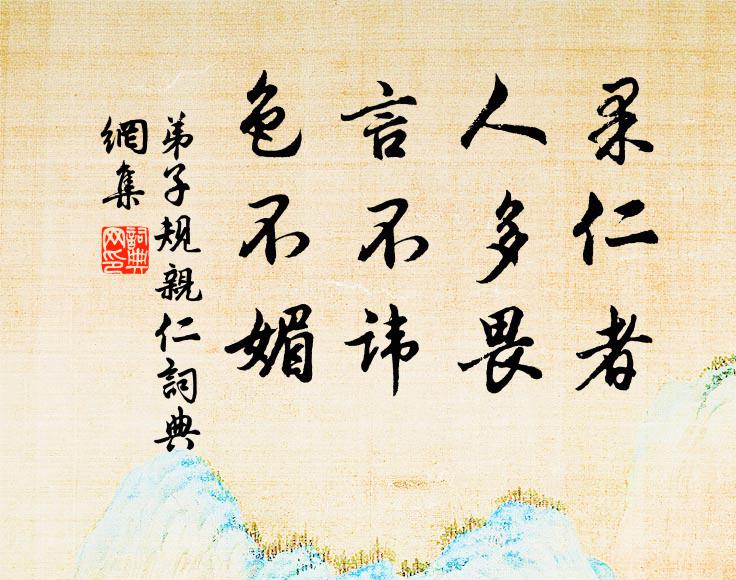 果仁者
人多畏
言不讳
色不媚
弟子规親仁詞典
網集
詞典网印